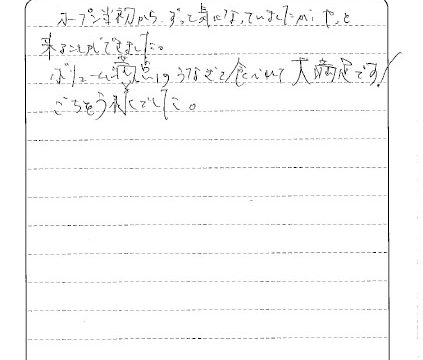 オープン当初からずって気になっていましたが、やっと
来ることができました。
ボリューム満点のうなぎを食べれて大満足です!
ごちそう様でした。